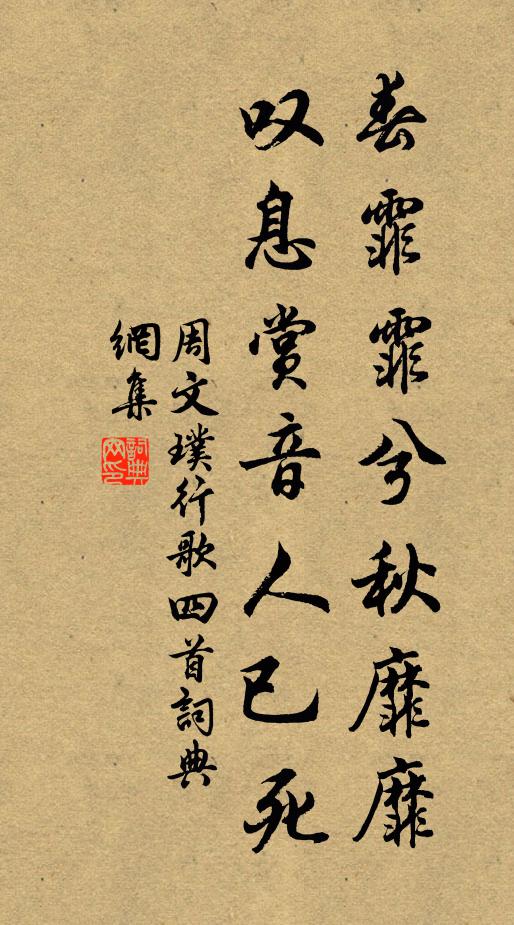 春霏霏兮秋靡靡
叹息賞音人已死
周文璞行歌四首詞典
網集
詞典
网印